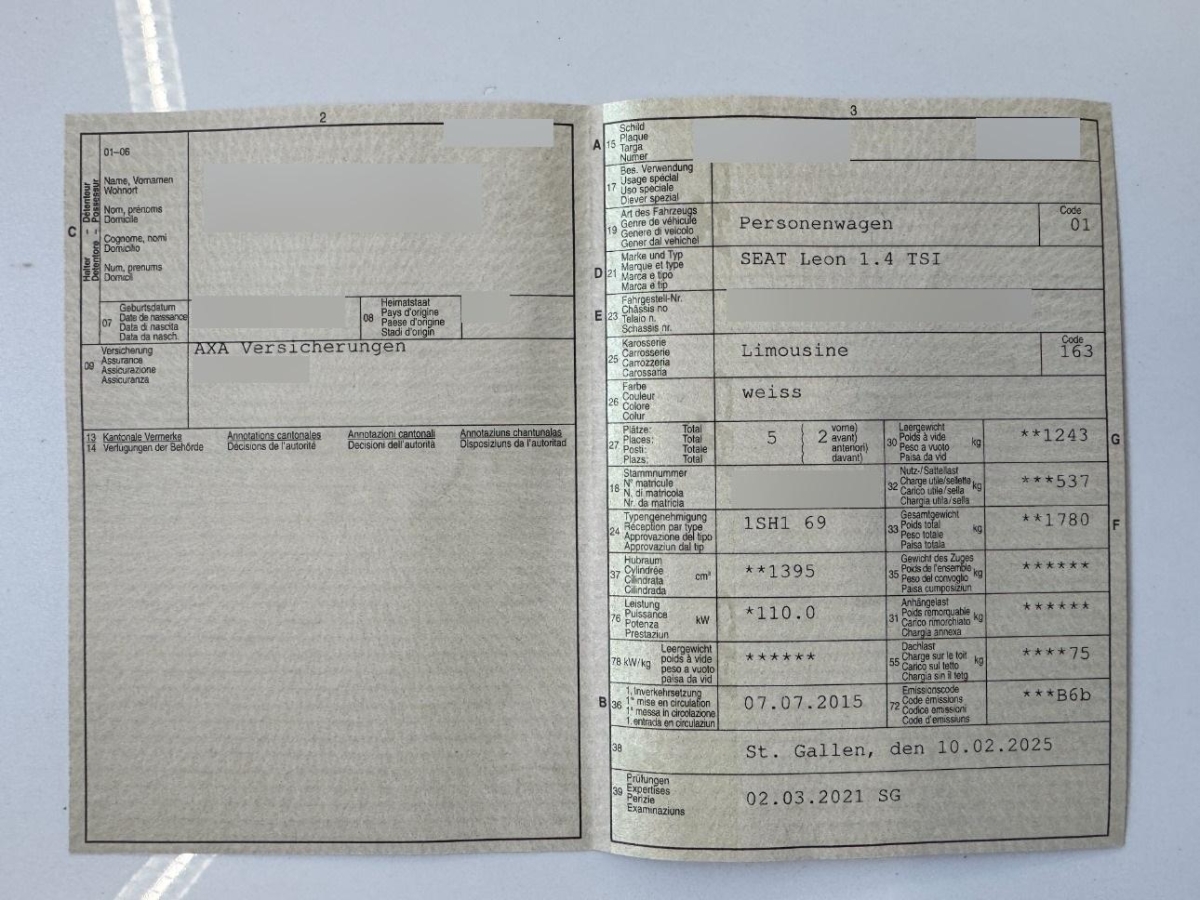 2
01–06
Halter – Détenteur
Detentore – Possessur
C
Name, Vornamen
Wohnort
Nom, prénoms
Domicile
Cognome, nomi
Domicilio
Num, prenums
Domicil
07
Geburtsdatum
Date de naissance
Data di nascita
Data da nasch.
08
Heimatstaat
Pays d'origine
Paese d'origine
Stadi d'origin
09
Versicherung
Assurance
Assicurazione
Assicuranza
AXA Versicherungen
13 Kantonale Vermerke
14 Verfügungen der Behörde
Annotations cantonales
Décisions de l'autorité
Annotazioni cantonali
Decisioni dell'autorità
Annotaziuns chantunalas
Disposiziuns da l'autoritad
3
A 15
Schild
Plaque
Targa
Numer
17
Bes. Verwendung
Usage spécial
Uso speciale
Diever spezial
19
Art des Fahrzeugs
Genre de véhicule
Genere di veicolo
Gener dal vehichel
Personenwagen
Code
01
D 21
Marke und Typ
Marque et type
Marca e tipo
Marca e tip
SEAT Leon 1.4 TSI
E 23
Fahrgestell-Nr.
Châssis no
Telaio n.
Schassis nr.
25
Karosserie
Carrosserie
Carrozzeria
Carossaria
Limousine
Code
163
26
Farbe
Couleur
Colore
Colur
weiss
27
Plätze: Total
Places: Total
Posti: Totale
Plazs: Total
5
2
vorne)
avant)
anteriori)
davant)
30
Leergewicht
Poids à vide
Peso a vuoto
Paisa da vid
kg
**1243
G
18
Stammnummer
N° matricule
N. di matricola
Nr. da matricla
32
Nutz-/Sattellast
Charge utile/sellette
Carico utile/sella
Chargia utila/sella
kg
***537
24
Typengenehmigung
Réception par type
Approvazione del tipo
Approvaziun dal tip
1SH1 69
33
Gesamtgewicht
Poids total
Peso totale
Paisa totala
kg
**1780
F
37
Hubraum
Cylindrée
Cilindrata
Cilindrada
cm³
**1395
35
Gewicht des Zuges
Poids de l'ensemble
Peso del convoglio
Paisa cumposiziun
kg
******
76
Leistung
Puissance
Potenza
Prestaziun
kW
*110.0
31
Anhängelast
Poids remorquable
Carico rimorchiato
Chargia annexa
kg
******
78 kW/kg
Leergewicht
poids à vide
peso a vuoto
paisa da vid
******
55
Dachlast
Charge sur le toit
Carico sul tetto
Chargia sin il tetg
kg
****75
B 36
1. Inverkehrsetzung
1re mise en circulation
1a messa in circolazione
1. entrada en circulaziun
07.07.2015
72
Emissionscode
Code émissions
Codice emissioni
Code d'emissiuns
***B6b
38
St. Gallen, den 10.02.2025
39
Prüfungen
Expertises
Perizie
Examinaziuns
02.03.2021 SG